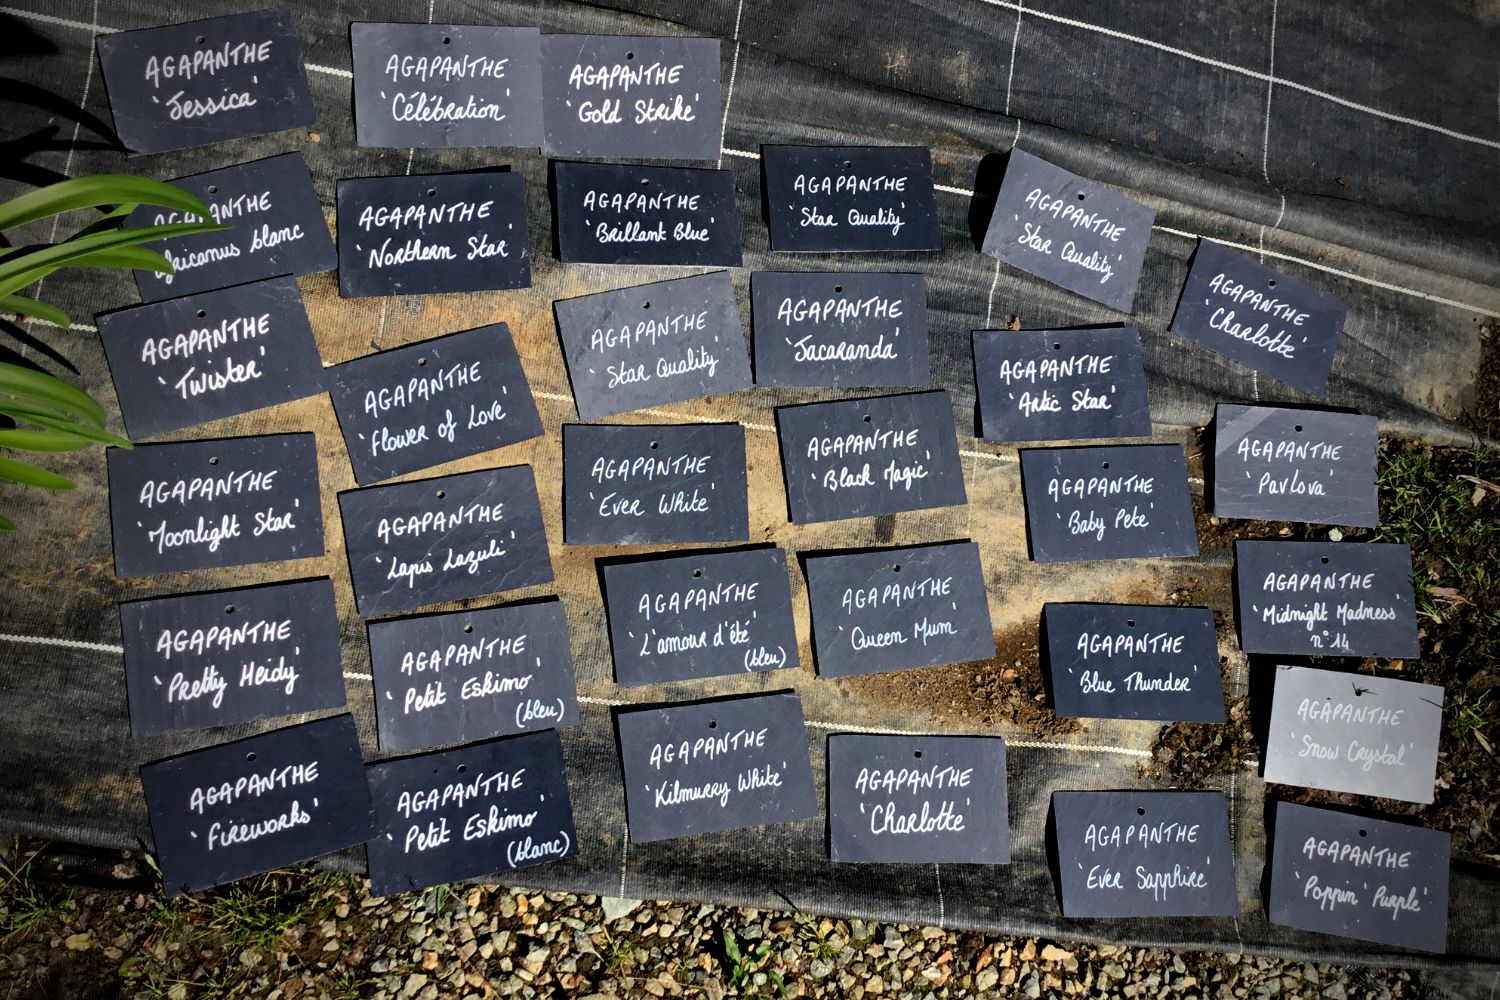 AGAPANTHE
'Jessica'
AGAPANTHE
'Célébration'
AGAPANTHE
'Gold Strike'
AGAPANTHE
africanus blanc
AGAPANTHE
'Northern Star'
AGAPANTHE
'Brillant Blue'
AGAPANTHE
'Star Quality'
AGAPANTHE
'Star Quality'
AGAPANTHE
'Charlotte'
AGAPANTHE
'Twister'
AGAPANTHE
'Flower of Love'
AGAPANTHE
'Star Quality'
AGAPANTHE
'Jacaranda'
AGAPANTHE
'Artic Star'
AGAPANTHE
'Pavlova'
AGAPANTHE
'Moonlight Star'
AGAPANTHE
'Lapis Lazuli'
AGAPANTHE
'Ever White'
AGAPANTHE
'Black Magic'
AGAPANTHE
'Baby Pete'
AGAPANTHE
'Midnight Madness'
n°14
AGAPANTHE
'Pretty Heidy'
AGAPANTHE
'Petit Eskimo'
(bleu)
AGAPANTHE
'L'amour d'été'
(bleu)
AGAPANTHE
'Queen Mum'
AGAPANTHE
'Blue Thunder'
AGAPANTHE
'Snow Crystal'
AGAPANTHE
'Fireworks'
AGAPANTHE
'Petit Eskimo'
(blanc)
AGAPANTHE
'Kilmurry White'
AGAPANTHE
'Charlotte'
AGAPANTHE
'Ever Sapphire'
AGAPANTHE
'Poppin' Purple'